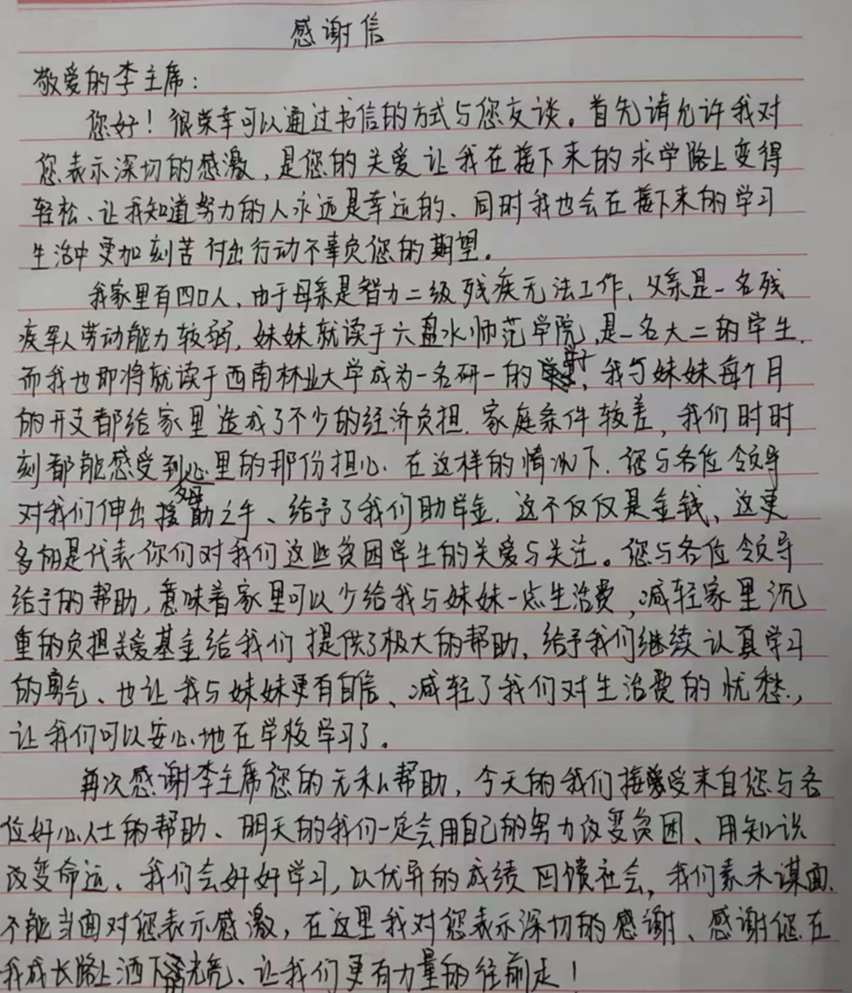 感谢信
敬爱的李主席：
您好！很荣幸可以通过书信的方式与您友谈。首先请允许我对
您表示深切的感激，是您的关爱让我在接下来的求学路上变得
轻松、让我知道努力的人永远是幸运的、同时我也会在接下来的学习
生活中更加刻苦付出行动不辜负您的期望。
我家里有四口人，由于母亲是智力二级残疾无法工作，父亲是一名残
疾军人劳动能力较弱，妹妹就读于六盘水师范学院，是一名大二的学生．
而我也即将就读于西南林业大学成为一名研一的，我与妹妹每个月
的开支都给家里造成了不少的经济负担．家庭条件较差，我们时时
刻都能感受到心里的那份担心．在这样的情况下．您与各位领导
对我们伸出援助之手、给予了我们助学金．这不仅仅是金钱、这更
多的是代表你们对我们这些贫困学生的关爱与关注。您与各位领导
给予的帮助，意味着家里可以少给我与妹妹一点生活费，减轻家里沉
重的负担关爱基金给我们提供了极大的帮助，给予我们继续认真学习
的勇气、也让我与妹妹更有自信、减轻了我们对生活费的忧愁，
让我们可以安心地在学校学习了。
再次感谢李主席您的无私帮助，今天的我们接受来自您与各
位好心人士的帮助、明天的我们一定会用自己的努力改变贫困、用知识
改变命运、我们会好好学习，以优异的成绩回馈社会，我们素未谋面．
不能当面对您表示感激，在这里我对您表示深切的感谢、感谢您在
我成长路上洒下光亮、让我们更有力量的往前走！